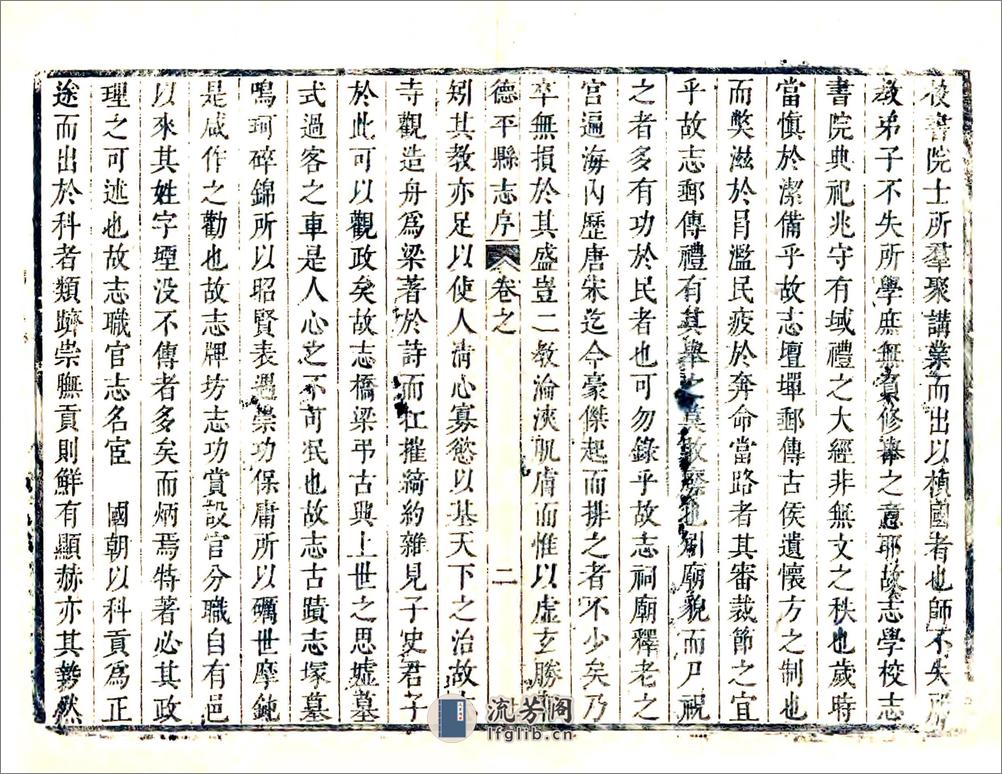 校書院士所羣聚講業而出以楨國者也師不失所
教弟子不失所學庶無負修舉之意耶故志學校志
書院典祀兆守有域禮之大經非無文之秩也歲時
當慎於潔備乎故志壇壝郵傳古侯遺懷方之制也
而獘滋於冐濫民疲於奔命當路者其審裁節之宜
乎故志郵傳禮有其舉之莫敢廢也剏廟貌而尸祝
之者多有功於民者也可勿錄乎故志祠廟釋老之
宫遍海内歷唐宋迄今豪傑起而排之者不少矣乃
卒無損於其盛豈二教淪浹肌膚而惟以虚玄勝
德平縣志序 卷之 二
矧其教亦足以使人清心寡慾以基天下之治故
寺觀造舟爲梁著於詩而杠摧綺約雜見子史君子
於此可以觀政矣故志橋梁弔古興上世之思墟墓
式過客之車是人心之不可泯也故志古蹟志塚墓
鳴珂碎錦所以昭賢表遇崇功保庸所以礪世摩鈍
是咸作之勸也故志牌坊志功賞設官分職自有邑
以來其姓字堙没不傳者多矣而炳焉特著必其政
理之可述也故志職官志名宦 國朝以科貢爲正
途而出於科者類躋崇膴貢則鮮有顯赫亦其勢然
流芳阁
lfglib.cn